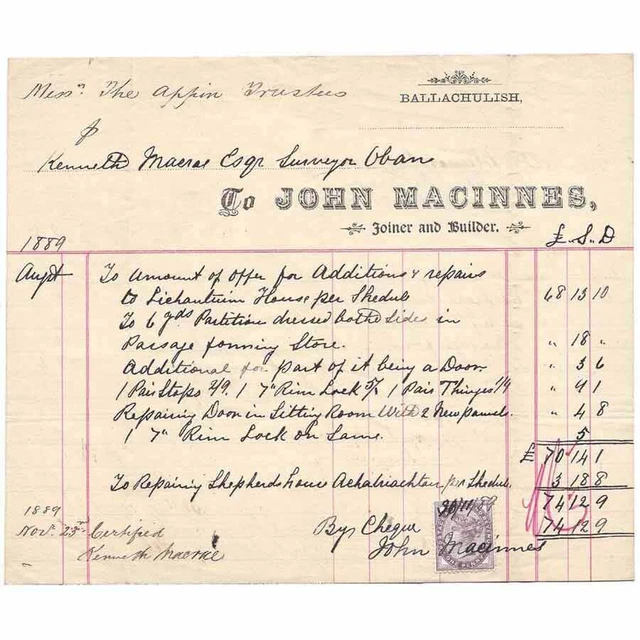 Messrs The Appin Trustees
BALLACHULISH,
p
Kenneth Macrae Esqr Surveyor Oban
To JOHN MACINNES,
Joiner and Builder.
1889 £ S. D
Augst To Amount of offer for Additions & repairs
to House per Shedule 68 13 10
To 6 yds Partition dressed both Sides in
Passage forming Store. " 18 "
Additional for part of it being a Door " 3 6
1 Pair Stops 2/9. 1 7" Rim Lock 1 Pair Thinges " 9 1
Repairing Door in Sitting Room With 2 New panels. " 4 8
1 7" Rim Lock on Same. 5
£ 70 14 1
To Repairing Shepherds house Achatriachtan per Shedule 3 18 8
74 12 9
1889 30/11/89
Novr. 23rd Certified By Cheque 74 12 9
Kenneth Macrae John Macinnes